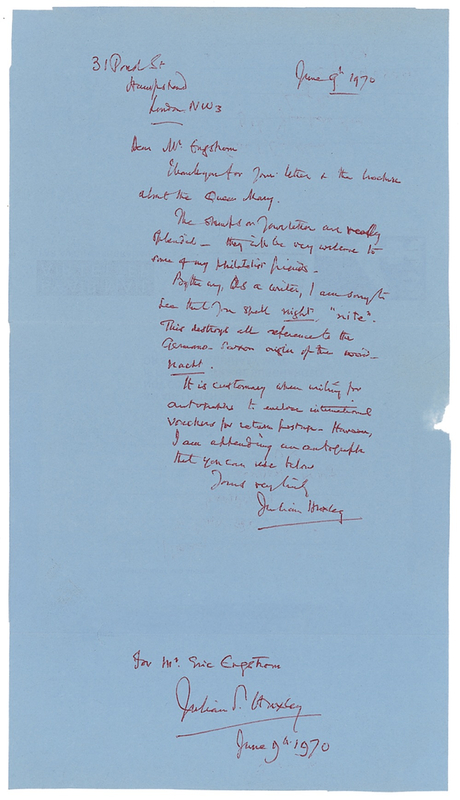 31 Pond St
June 9th 1970
Hampstead
London NW3
Dear Mr Engstrom
Thank you for your letter & the brochure
about the Queen Mary.
The stamps on your letter are really
splendid — they will be very welcome to
some of my philatelist friends.
By the way, as a writer, I am sorry to
see that you spell night, "nite".
This destroys all reference to the
Germano-Saxon origin of the word -
nacht.
It is customary when writing for
autographs to enclose international
vouchers for return postage - However,
I am appending an autograph
that you can use below
Yours very truly
Julian Huxley
For Mr. Eric Engstrom
Julian S. Huxley
June 9th 1970